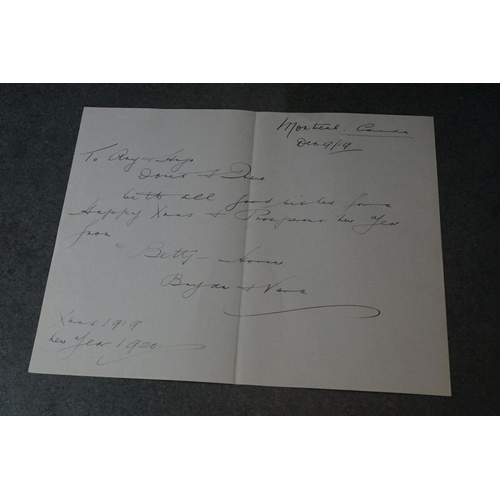 Montreal. Canada
Dec 9/19
To
Doris &
with all good wishes for a
Happy Xmas & Prosperous New Year
from
Betty
&
Xmas 1919
New Year 1920